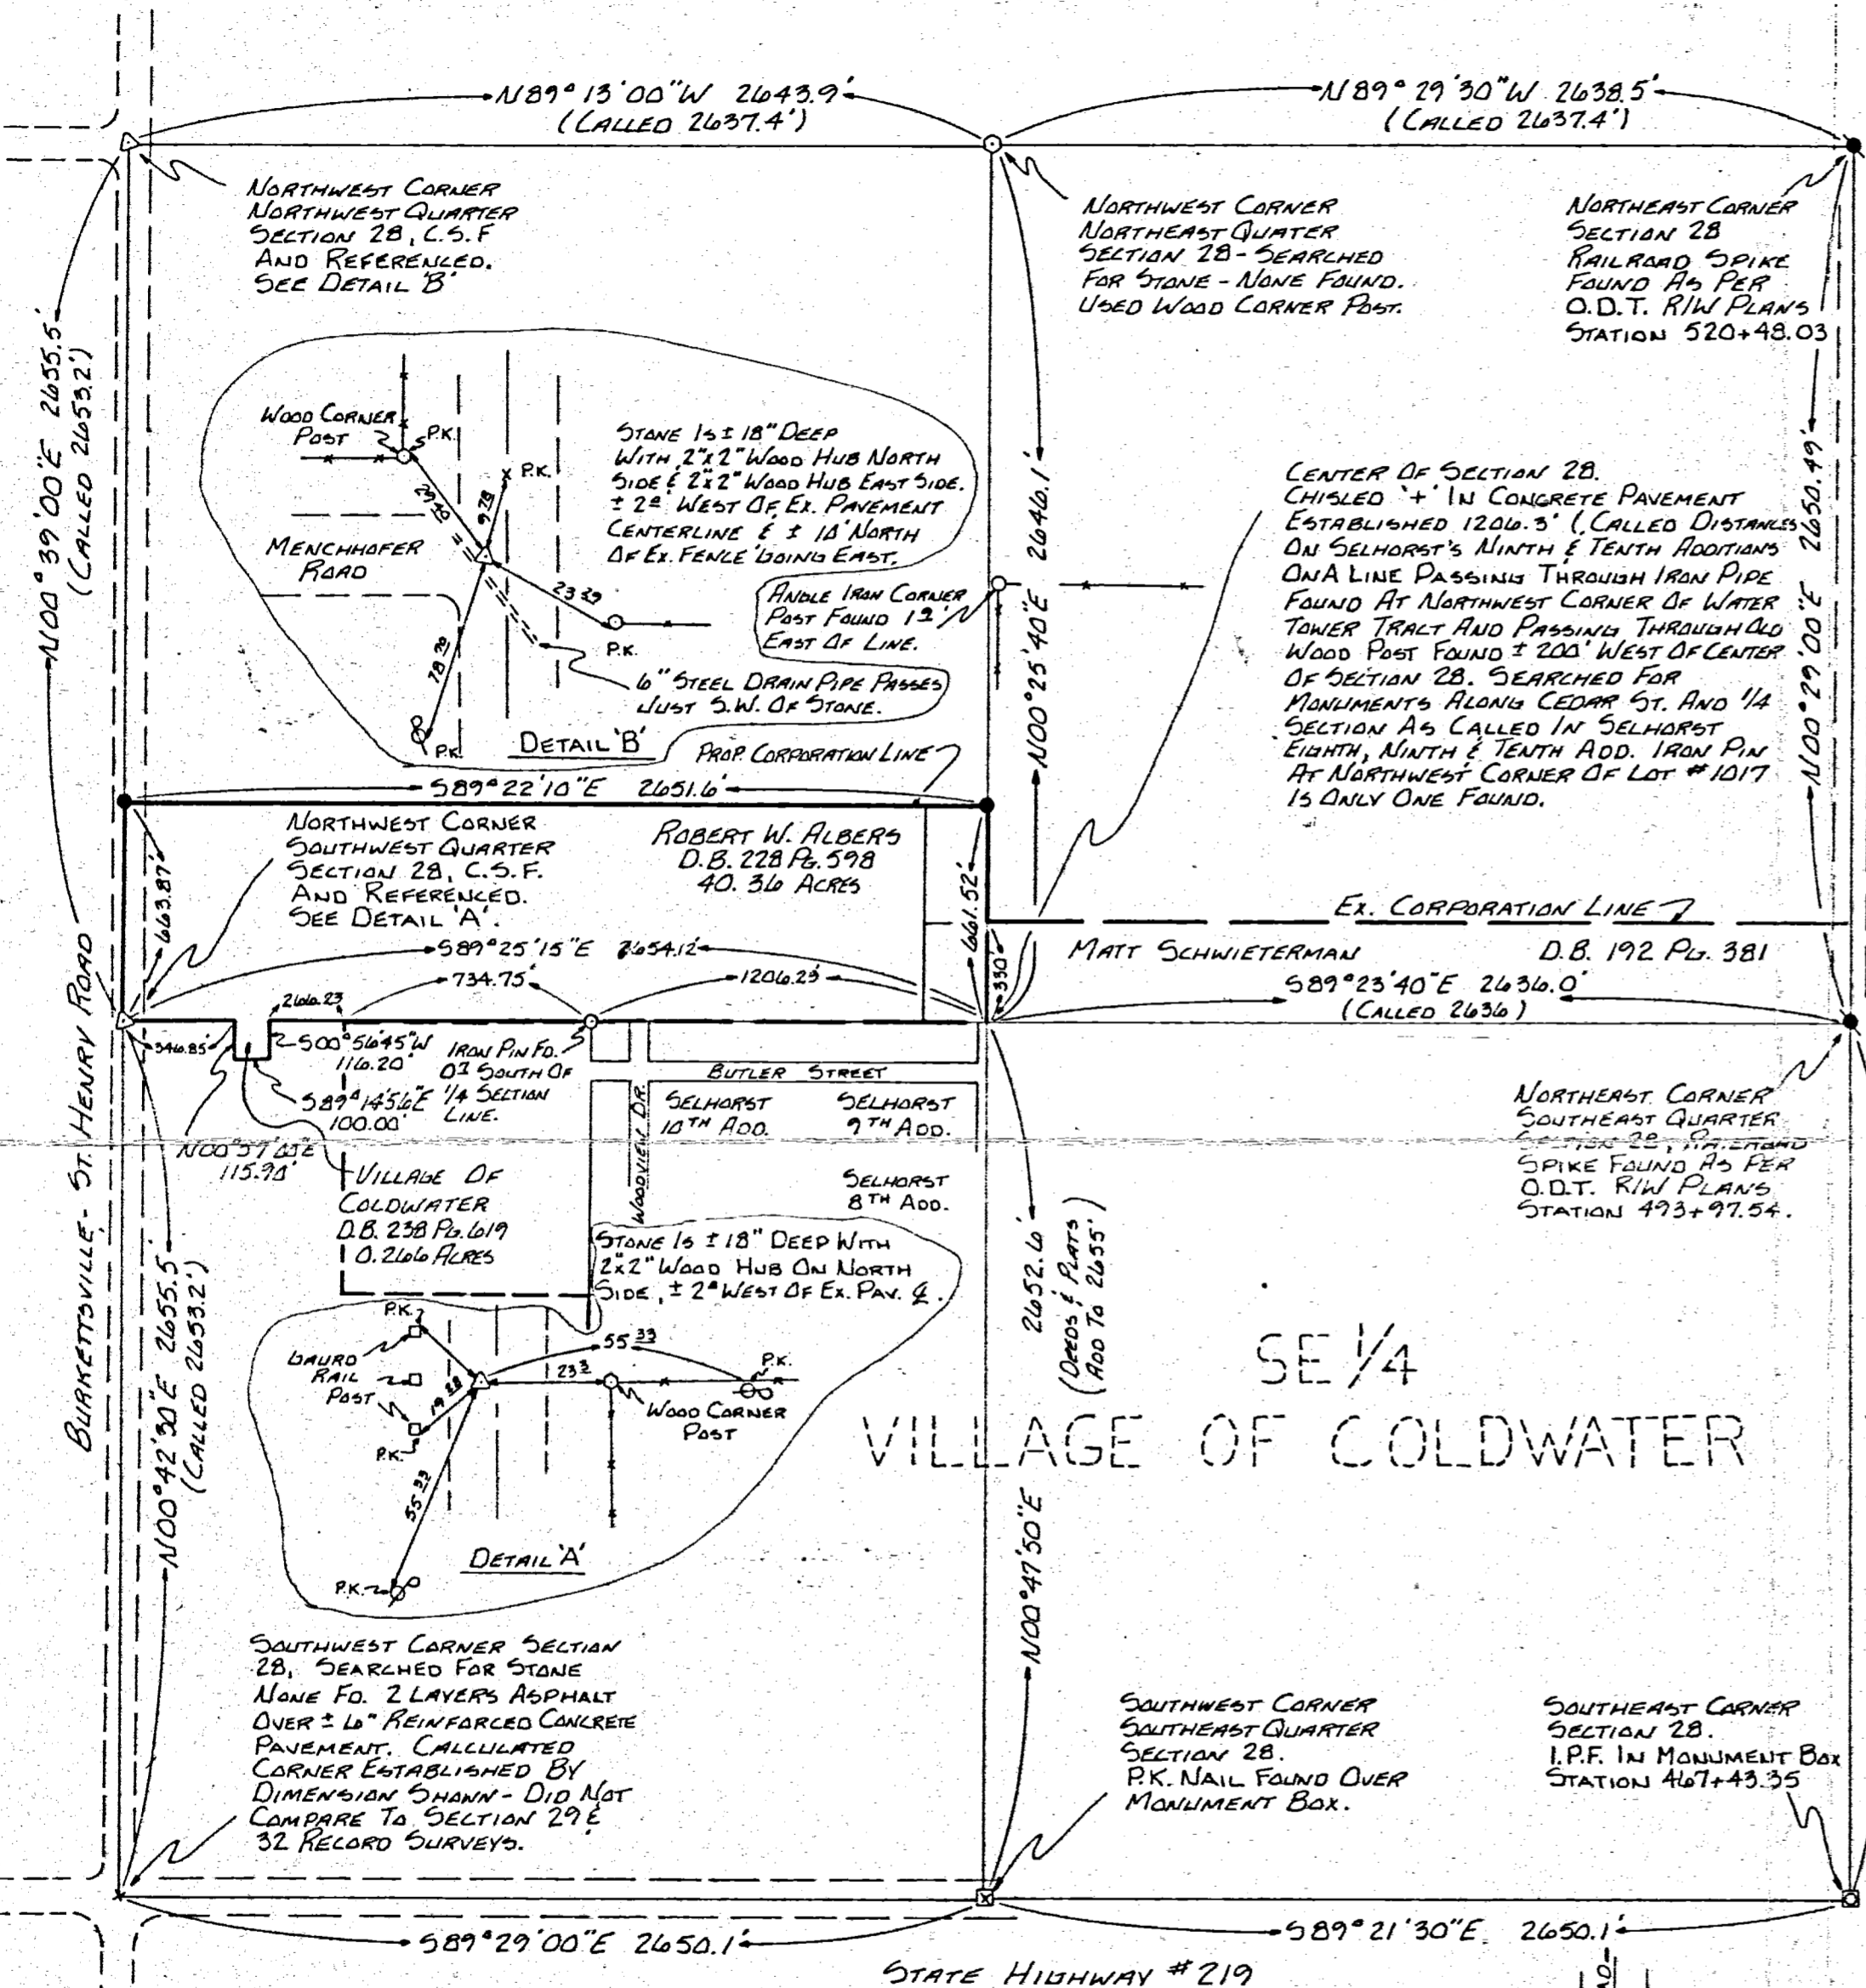 N89°13'00"W 2643.9'
(CALLED 2637.4')
N89°29'30"W 2638.5'
(CALLED 2637.4')
NORTHWEST CORNER
NORTHWEST QUARTER
SECTION 28, C.S.F
AND REFERENCED.
SEE DETAIL 'B'
NORTHWEST CORNER
NORTHEAST QUATER
SECTION 28 - SEARCHED
FOR STONE - NONE FOUND.
USED WOOD CORNER POST.
NORTHEAST CORNER
SECTION 28
RAILROAD SPIKE
FOUND AS PER
O.D.T. R/W PLANS
STATION 520+48.03
N00°39'00"E 2655.5'
(CALLED 2653.2')
WOOD CORNER
POST
P.K.
P.K.
STONE IS ± 18" DEEP
WITH 2"x2" WOOD HUB NORTH
SIDE & 2"x2" WOOD HUB EAST SIDE.
WEST OF EX. PAVEMENT
CENTERLINE & ± 10' NORTH
OF EX. FENCE GOING EAST.
MENCHHOFER
ROAD
23 29
P.K.
P.K.
ANGLE IRON CORNER
POST FOUND
EAST OF LINE.
6" STEEL DRAIN PIPE PASSES
JUST S.W. OF STONE.
DETAIL 'B'
PROP. CORPORATION LINE
2646.1'
N00°25'40"E
CENTER OF SECTION 28.
CHISLED '+' IN CONCRETE PAVEMENT
ESTABLISHED 1206.3' (CALLED DISTANCES
ON SELHORST'S NINTH & TENTH ADDITIONS
ON A LINE PASSING THROUGH IRON PIPE
FOUND AT NORTHWEST CORNER OF WATER
TOWER TRACT AND PASSING THROUGH OLD
WOOD POST FOUND ± 200' WEST OF CENTER
OF SECTION 28. SEARCHED FOR
MONUMENTS ALONG CEDAR ST. AND 1/4
SECTION AS CALLED IN SELHORST
EIGHTH, NINTH & TENTH ADD. IRON PIN
AT NORTHWEST CORNER OF LOT #1017
IS ONLY ONE FOUND.
N00°29'00"E 2650.49'
S89°22'10"E 2651.6'
NORTHWEST CORNER
SOUTHWEST QUARTER
SECTION 28, C.S.F.
AND REFERENCED.
SEE DETAIL 'A'.
ROBERT W. ALBERS
D.B. 228 PG. 598
40.36 ACRES
663.87'
661.52'
330'
EX. CORPORATION LINE
MATT SCHWIETERMAN D.B. 192 PG. 381
S89°23'40"E 2636.0'
(CALLED 2636)
S89°25'15"E 2654.12'
734.75'
1206.23'
266.23
346.85'
S00°56'45"W
116.20'
S89°14'56"E
100.00'
115.90'
IRON PIN FD.
SOUTH OF
1/4 SECTION
LINE.
BUTLER STREET
WOODVIEW DR.
SELHORST
10TH ADD.
SELHORST
9TH ADD.
SELHORST
8TH ADD.
VILLAGE OF
COLDWATER
D.B. 238 PG. 619
0.266 ACRES
NORTHEAST CORNER
SOUTHEAST QUARTER
SECTION 28, RAILROAD
SPIKE FOUND AS PER
O.D.T. R/W PLANS
STATION 493+97.54.
BURKETTSVILLE - ST. HENRY ROAD
N00°42'30"E 2655.5'
(CALLED 2653.2')
STONE IS ± 18" DEEP WITH
2"x2" WOOD HUB ON NORTH
WEST OF EX. PAV. ℄.
P.K.
GAURD
RAIL
POST
P.K.
55 33
P.K.
WOOD CORNER
POST
P.K.
DETAIL 'A'
2652.6'
N00°47'50"E
(DEEDS & PLATS
ADD TO 2655')
SE 1/4
VILLAGE OF COLDWATER
SOUTHWEST CORNER SECTION
28, SEARCHED FOR STONE
NONE FD. 2 LAYERS ASPHALT
OVER ± 6" REINFORCED CONCRETE
PAVEMENT. CALCULATED
CORNER ESTABLISHED BY
DIMENSION SHOWN - DID NOT
COMPARE TO SECTION 29 &
32 RECORD SURVEYS.
SOUTHWEST CORNER
SOUTHEAST QUARTER
SECTION 28.
P.K. NAIL FOUND OVER
MONUMENT BOX.
SOUTHEAST CORNER
SECTION 28.
I.P.F. IN MONUMENT BOX
STATION 467+43.35
S89°29'00"E 2650.1'
S89°21'30"E 2650.1'
STATE HIGHWAY #219